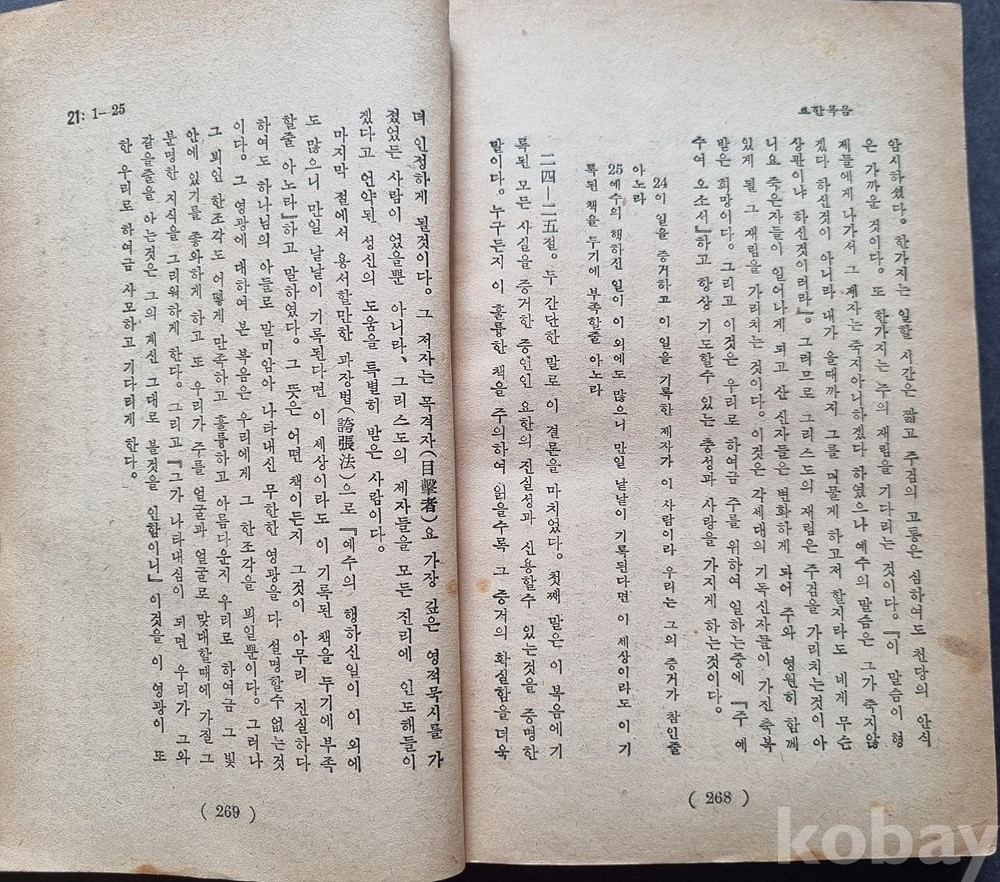 요한복음
암시하셨다。한가지는 일할 시간은 짧고 주검의 고통은 심하여도 천당의 안식
은 가까운 것이다。또 한가지는 주의 재림을 기다리는 것이다。『이 말슴이 형
제들에게 나가서 그 제자는 죽지아니하겠다 하였으나 예수의 말슴은 그가 죽지않
겠다 하신것이 아니라 내가 올때까지 그를 머물게 하고저 할지라도 네게 무슨
상관이냐 하신것이러라』。그러므로 그리스도의 재림은 주검을 가리치는것이 아
니요 죽은자들이 일어나게 되고 산 신자들은 변화하게 되어 주와 영원히 함께
있게 될 그 재림을 가리치는 것이다。이것은 각세대의 기독신자들이 가진 축복
받은 희망이다。그리고 이것은 우리로 하여금 주를 위하여 일하는중에 『주 예
수여 오소서』하고 항상 기도할수 있는 충성과 사랑을 가지게 하는것이다。
24이 일을 증거하고 이 일을 기록한 제자가 이 사람이라 우리는 그의 증거가 참인줄
아노라
25예수의 행하신 일이 이 외에도 많으니 만일 낱낱이 기록된다면 이 세상이라도 이 기
록된 책을 두기에 부족할줄 아노라
二四—二五절。두 간단한 말로 이 결론을 마치었다。첫째 말은 이 복음에 기
록된 모든 사실을 증거한 증인인 요한의 진실성과 신용할수 있는것을 증명한
말이다。누구든지 이 훌륭한 책을 주의하여 읽을수록 그 증거의 확실함을 더욱
( 268 )
21: 1—25
더 인정하게 될것이다。그 저자는 목격자(目擊者)요 가장 깊은 영적묵시를 가
졌었든 사람이 었을뿐 아니라、그리스도의 제자들을 모든 진리에 인도해들이
겠다고 언약된 성신의 도움을 특별히 받은 사람이다。
마지막 절에서 용서할만한 과장법(誇張法)으로 『예수의 행하신일이 이 외에
도 많으니 만일 낱낱이 기록된다면 이 세상이라도 이 기록된 책을 두기에 부족
할줄 아노라』하고 말하였다。그 뜻은 어떤 책이든지 그것이 아무리 진실하다
하여도 하나님의 아들로 말미암아 나타내신 무한한 영광을 다 설명할수 없는것
이다。그 영광에 대하여 본 복음은 우리에게 그 한조각을 뵈일뿐이다。그러나
그 뵈인 한조각도 어떻게 만족하고 훌륭하고 아름다운지 우리로 하여금 그 빛
안에 있기를 좋와하게 하고 또 우리가 주를 얼굴과 얼굴로 맞대할때에 가질 그
분명한 지식을 그리워하게 한다。그리고 『그가 나타내심이 되면 우리가 그와
같을줄을 아는것은 그의 계신 그대로 볼것을 인함이니』이것을 이 영광이 또
한 우리로 하여금 사모하고 기다리게 한다。
( 269 )
kobay